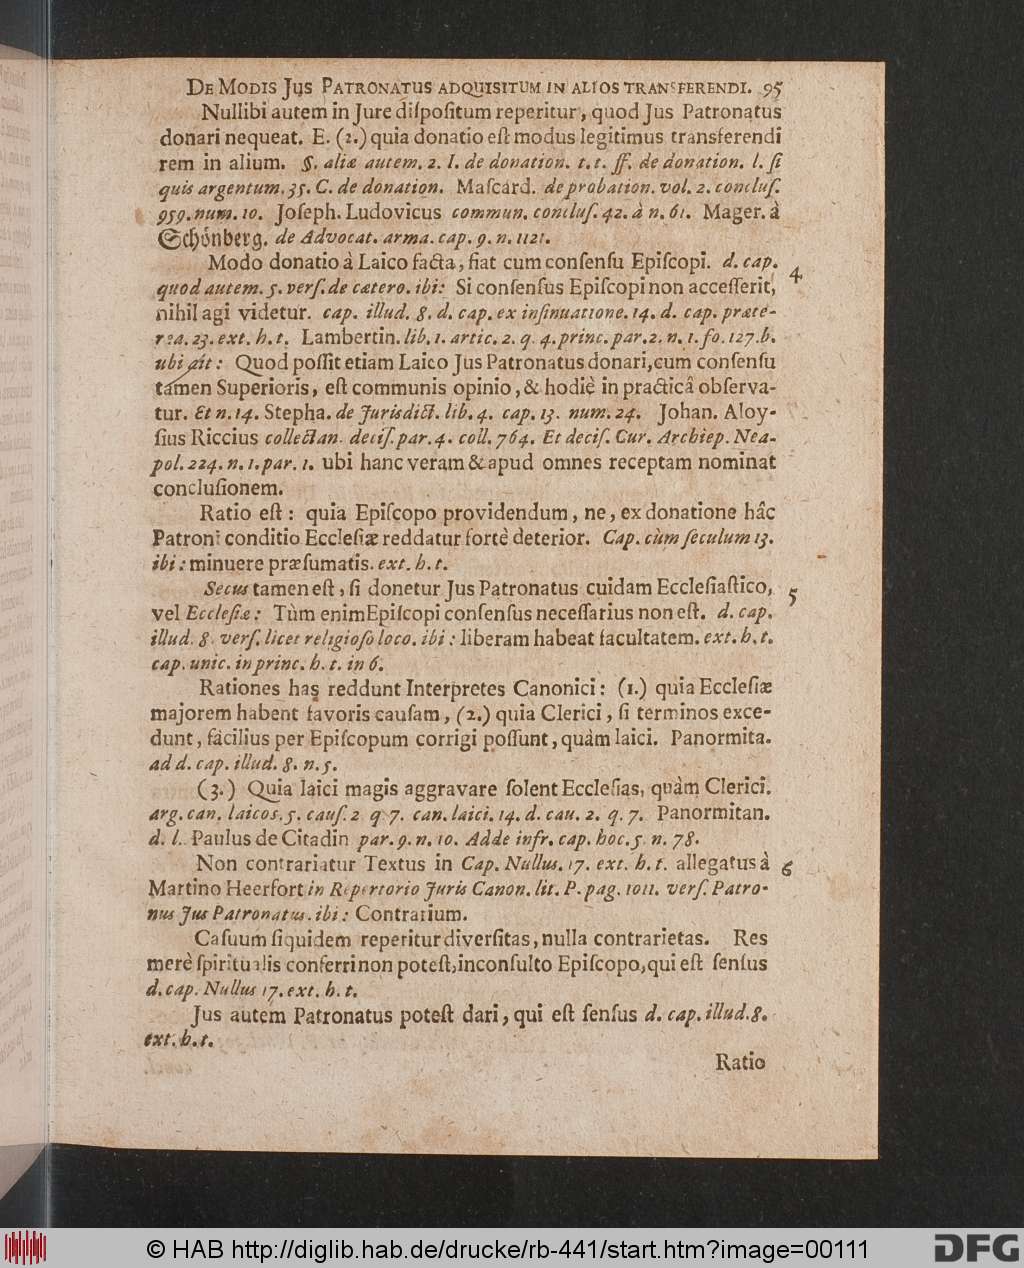 De Modis Jus Patronatus adquisitum in alios transferendi. 95
Nullibi autem in Jure diſpoſitum reperitur, quod Jus Patronatus
donari nequeat. E. (2.) quia donatio eſt modus legitimus transferendi
rem in alium. §. aliæ autem. 2. I. de donation. t. t. ff. de donation. l. ſi
quis argentum. 35. C. de donation. Maſcard. de probation. vol. 2. concluſ.
959. num. 10. Joſeph. Ludovicus commun. concluſ. 42. à n. 61. Mager. à
Schönberg. de Advocat. arma. cap. 9. n. 1121.
Modo donatio à Laico facta, fiat cum conſenſu Epiſcopi. d. cap. 4
quod autem. 5. verſ. de cætero. ibi: Si conſenſus Epiſcopi non acceſſerit,
nihil agi videtur. cap. illud. 8. d. cap. ex inſinuatione. 14. d. cap. præte-
rea. 23. ext. h. t. Lambertin. lib. 1. artic. 2. q. 4. princ. par. 2. n. 1. fo. 127. b.
ubi ait: Quod poſſit etiam Laico Jus Patronatus donari, cum conſenſu
tamen Superioris, eſt communis opinio, & hodiè in practicâ obſerva-
tur. Et n. 14. Stepha. de Jurisdict. lib. 4. cap. 13. num. 24. Johan. Aloy-
ſius Riccius collectan. deciſ. par. 4. coll. 764. Et deciſ. Cur. Archiep. Nea-
pol. 224. n. 1. par. 1. ubi hanc veram & apud omnes receptam nominat
concluſionem.
Ratio eſt: quia Epiſcopo providendum, ne, ex donatione hâc
Patroni conditio Eccleſiæ reddatur fortè deterior. Cap. cùm ſeculum 13.
ibi: minuere præſumatis. ext. h. t.
Secus tamen eſt, ſi donetur Jus Patronatus cuidam Eccleſiaſtico, 5
vel Eccleſiæ: Tùm enim Epiſcopi conſenſus neceſſarius non eſt. d. cap.
illud. 8. verſ. licet religioſo loco. ibi: liberam habeat facultatem. ext. h. t.
cap. unic. in princ. h. t. in 6.
Rationes has reddunt Interpretes Canonici: (1.) quia Eccleſiæ
majorem habent favoris cauſam, (2.) quia Clerici, ſi terminos exce-
dunt, facilius per Epiſcopum corrigi poſſunt, quàm laici. Panormita.
ad d. cap. illud. 8. n. 5.
(3.) Quia laici magis aggravare ſolent Eccleſias, quàm Clerici.
arg. can. laicos. 5. cauſ. 2. q. 7. can. laici. 14. d. cau. 2. q. 7. Panormitan.
d. l. Paulus de Citadin par. 9. n. 10. Adde infr. cap. hoc. 5. n. 78.
Non contrariatur Textus in Cap. Nullus. 17. ext. h. t. allegatus à 6
Martino Heerfort in Repertorio Juris Canon. lit. P. pag. 1011. verſ. Patro-
nus Jus Patronatus. ibi: Contrarium.
Caſuum ſiquidem reperitur diverſitas, nulla contrarietas. Res
merè ſpiritualis conferri non poteſt, inconſulto Epiſcopo, qui eſt ſenſus
d. cap. Nullus 17. ext. h. t.
Jus autem Patronatus poteſt dari, qui eſt ſenſus d. cap. illud. 8.
ext. h. t.
Ratio
© HAB http://diglib.hab.de/drucke/rb-441/start.htm?image=00111
DFG